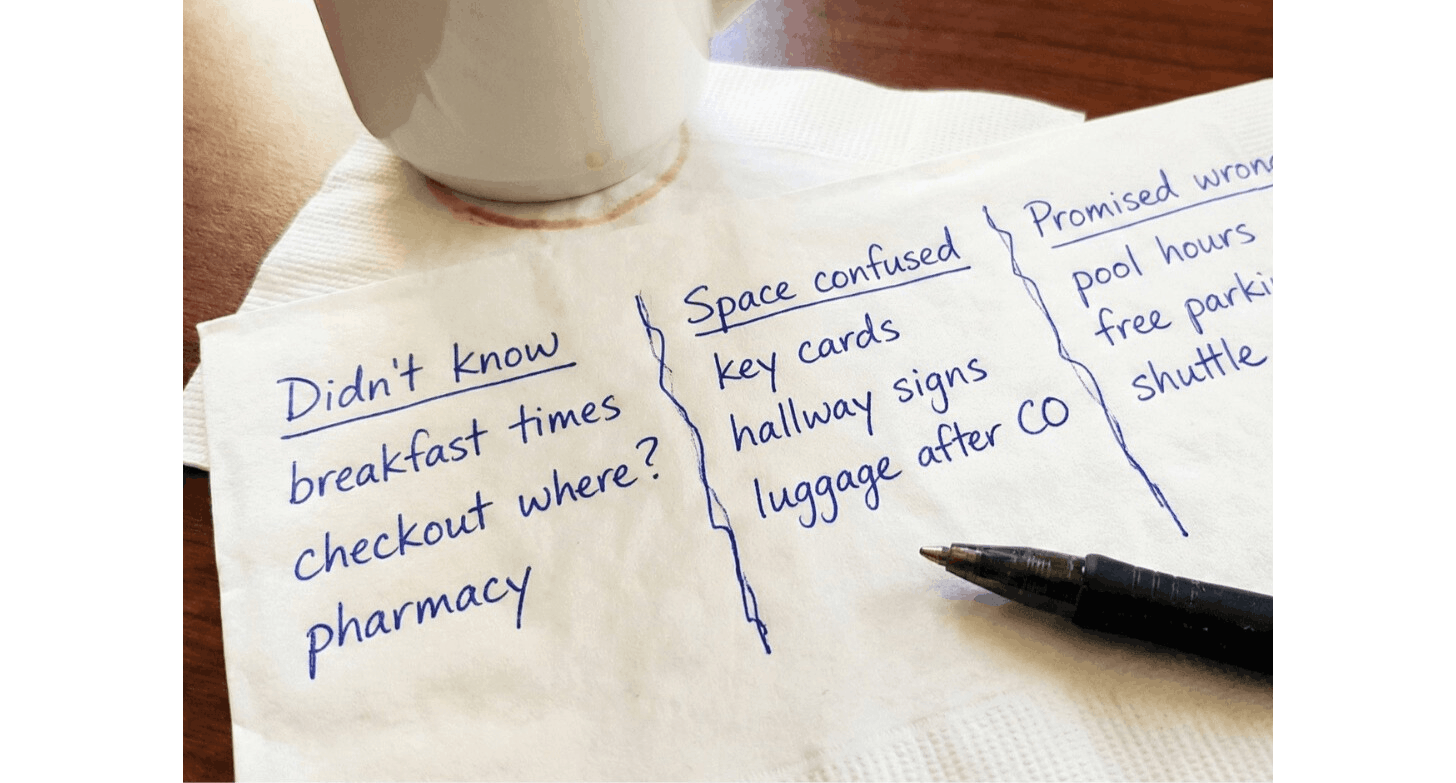 Didn't know
breakfast times
checkout where?
pharmacy
Space confused
key cards
hallway signs
luggage after CO
Promised wrong
pool hours
free parki
shuttle